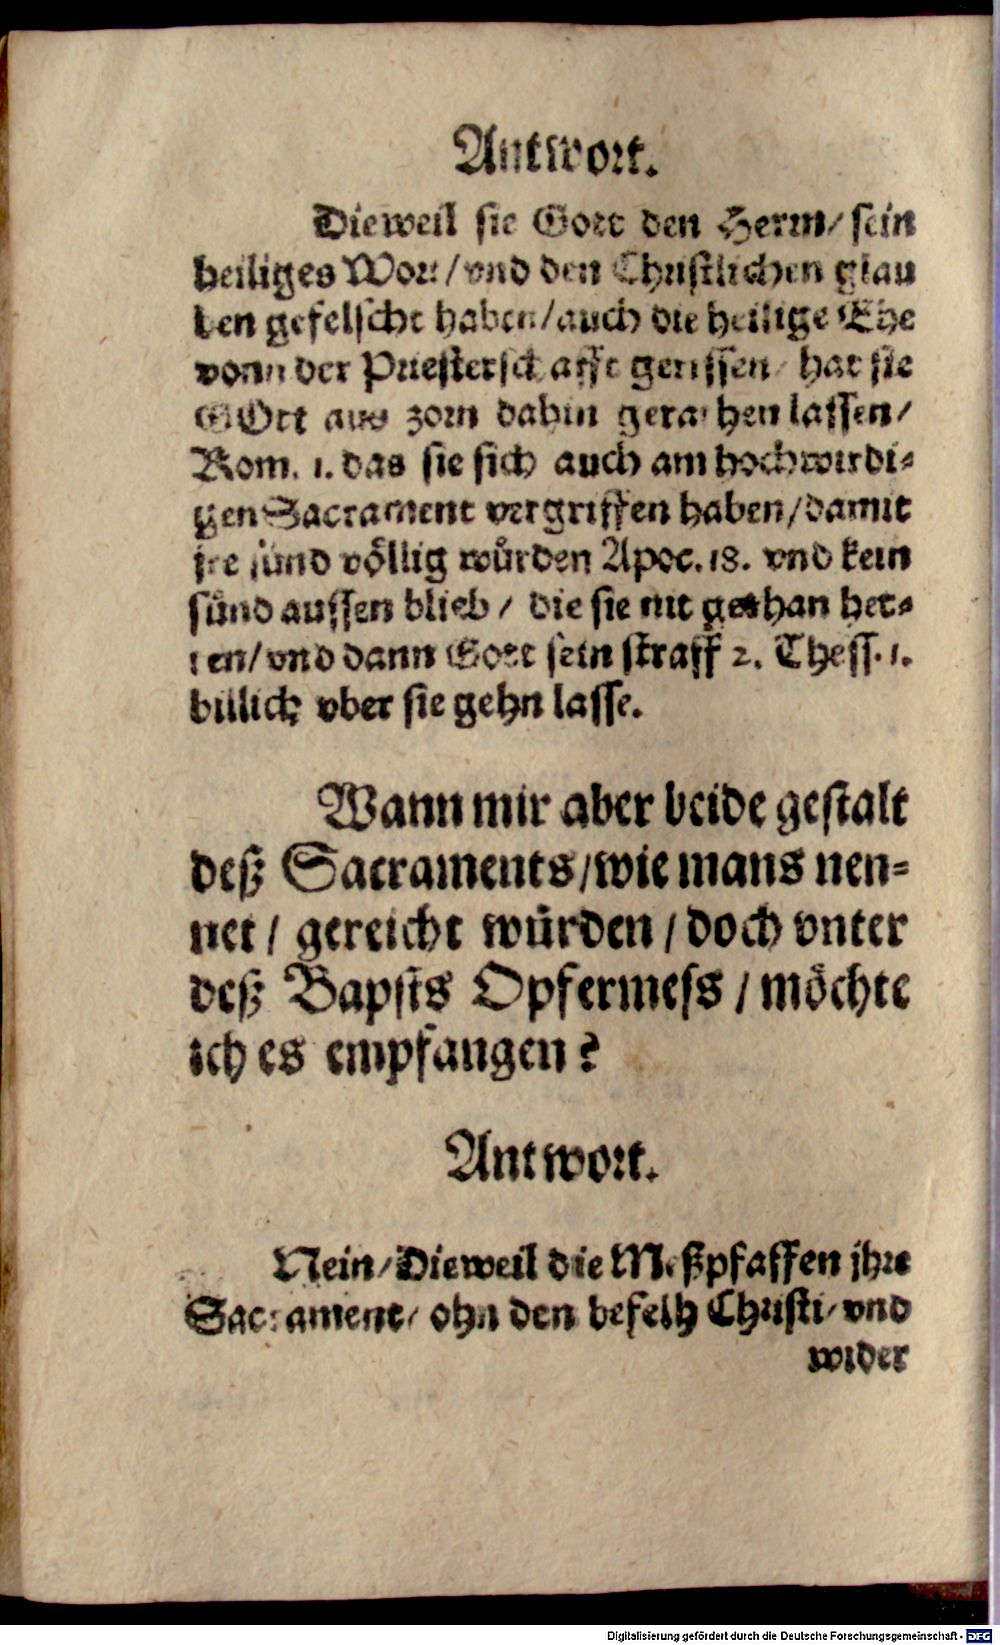 Antwort.
Dieweil sie Gott den Herrn/ sein
heiliges Wort/ vnd den Christlichen glau
ben gefelscht haben/ auch die heilige Ehe
vonn der Priesterschafft gerissen/ hat sie
GOtt aus zorn dahin gerathen lassen/
Rom. 1. das sie sich auch am hochwirdi-
gen Sacrament vergriffen haben/ damit
jre sünd völlig würden Apoc. 18. vnd kein
sünd aussen blieb/ die sie nit gethan het-
ten/ vnd dann Gott sein straff 2. Thess. 1.
billich vber sie gehn lasse.
Wann mir aber beide gestalt
deß Sacraments/ wie mans nen-
net/ gereicht würden/ doch vnter
deß Bapsts Opfermess/ möchte
ich es empfangen?
Antwort.
Nein/ Dieweil die Meßpfaffen jhre
Sacrament/ ohn den befelh Christi/ vnd
wider
Digitalisierung gefördert durch die Deutsche Forschungsgemeinschaft - DFG